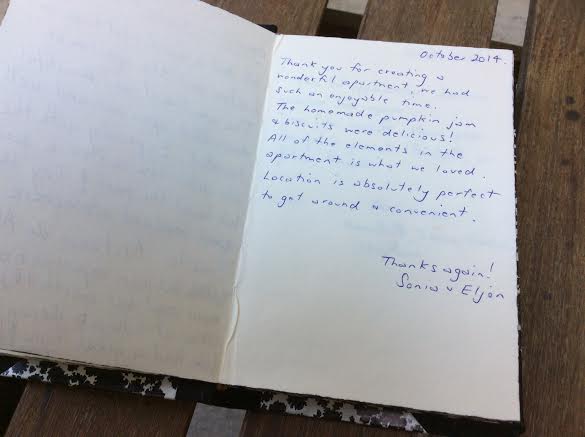 October 2014.
Thank you for creating a
wonderful apartment, we had
such an enjoyable time.
The homemade pumpkin jam
& biscuits were delicious!
All of the elements in the
apartment is what we loved.
Location is absolutely perfect
to get around & convenient.
Thanks again!
Sonia & Eljon